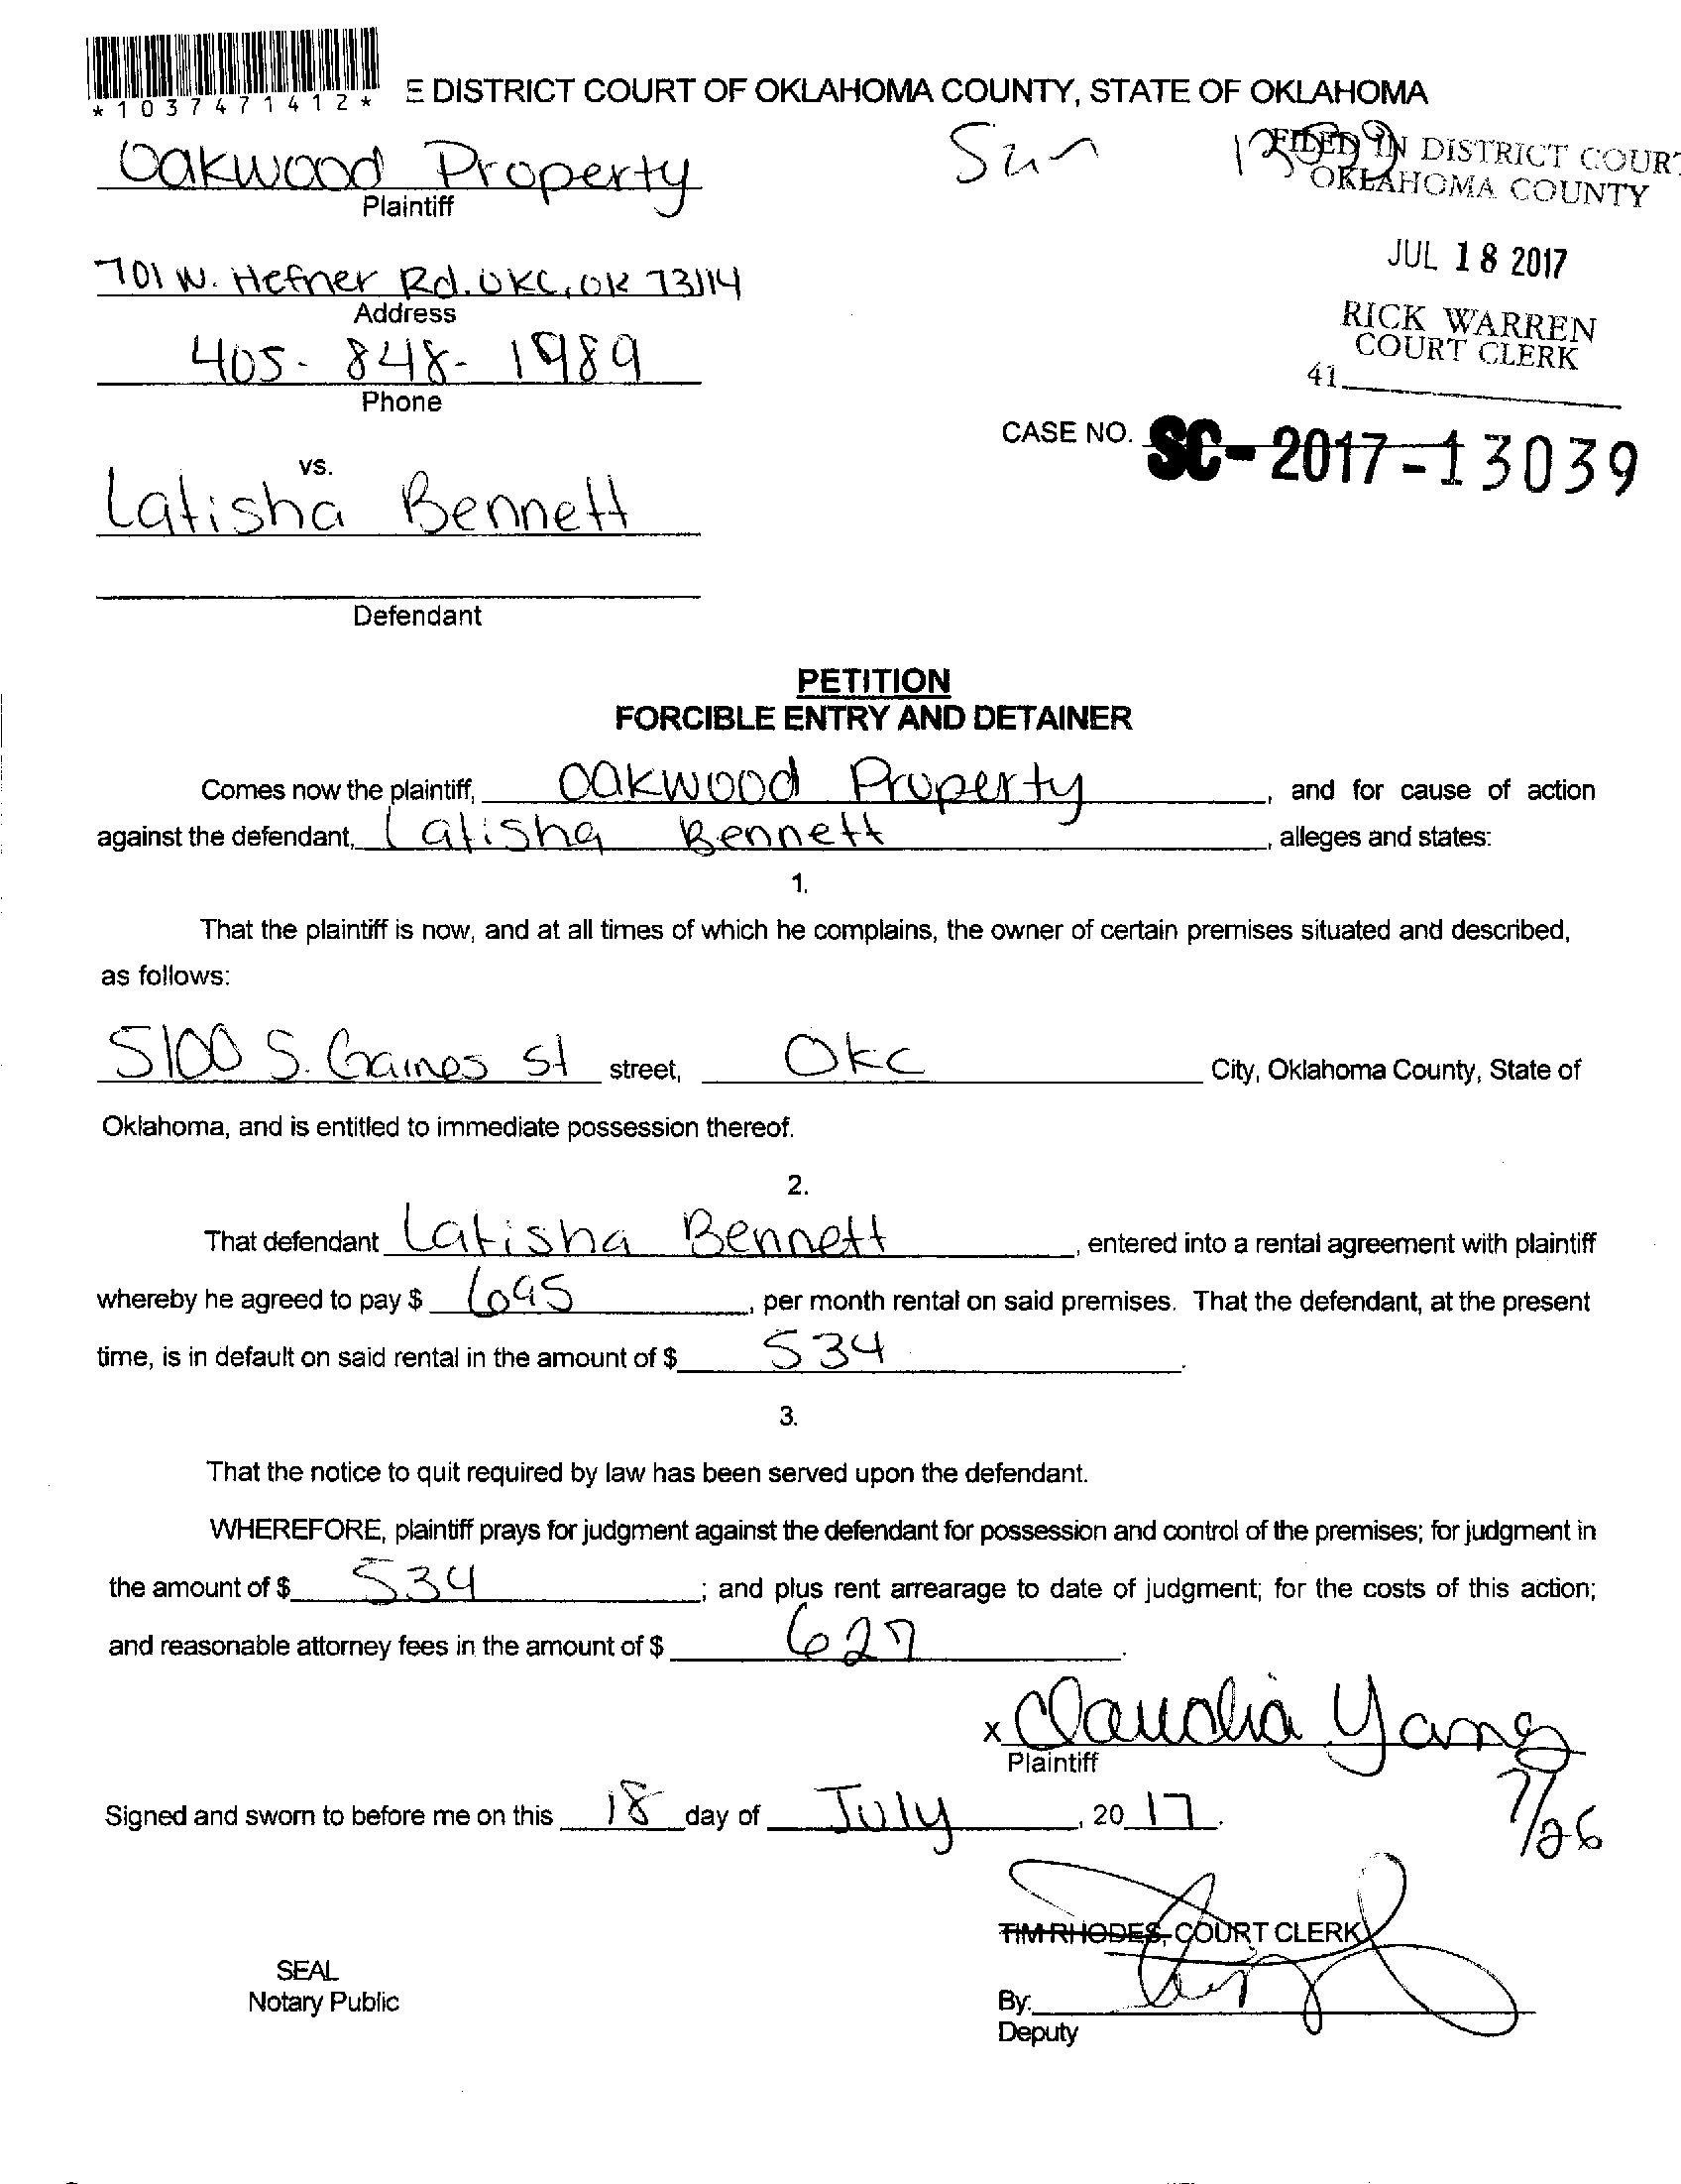 *1037471412*
E DISTRICT COURT OF OKLAHOMA COUNTY, STATE OF OKLAHOMA
Oakwood Property
Plaintiff
FILED IN DISTRICT COURT
OKLAHOMA COUNTY
701 W. Hefner Rd. OKC, OK 73114
Address
JUL 18 2017
405-848-1989
Phone
RICK WARREN
COURT CLERK
41
CASE NO. SC-2017-13039
vs.
Latisha Bennett
Defendant
PETITION
FORCIBLE ENTRY AND DETAINER
Comes now the plaintiff, Oakwood Property, and for cause of action
against the defendant, Latisha Bennett, alleges and states:
1.
That the plaintiff is now, and at all times of which he complains, the owner of certain premises situated and described,
as follows:
5100 S. Gaines St street, OKC City, Oklahoma County, State of
Oklahoma, and is entitled to immediate possession thereof.
2.
That defendant Latisha Bennett, entered into a rental agreement with plaintiff
whereby he agreed to pay $ 695, per month rental on said premises. That the defendant, at the present
time, is in default on said rental in the amount of $ 534.
3.
That the notice to quit required by law has been served upon the defendant.
WHEREFORE, plaintiff prays for judgment against the defendant for possession and control of the premises; for judgment in
the amount of $ 534; and plus rent arrearage to date of judgment; for the costs of this action;
and reasonable attorney fees in the amount of $ 627.
x Claudia Yang
Plaintiff
7/26
Signed and sworn to before me on this 18 day of July, 20 17.
TIM RHODES, COURT CLERK
SEAL
Notary Public
By:
Deputy